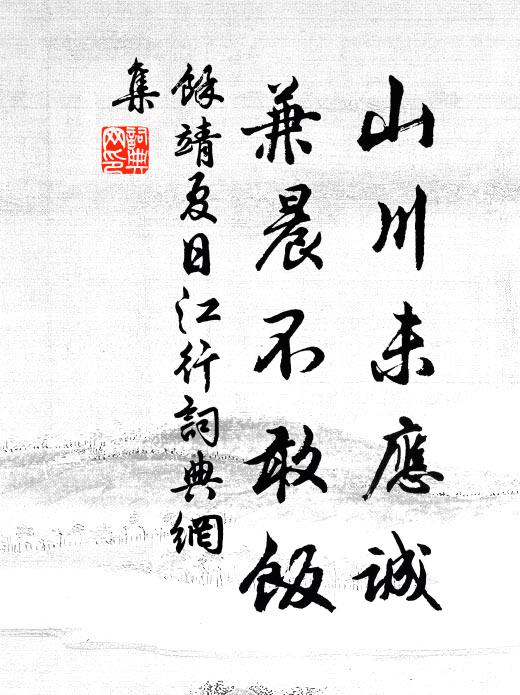 山川未應誠
兼晨不敢飯
餘靖夏日江行詞典網
集
詞典網印